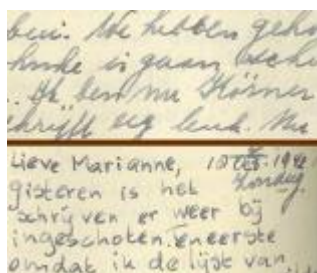 ben. We hebben geho
is gaan
.. Ik ben nu Körner
schrijft erg leuk. Nu
Lieve Marianne, 12 Oct. 1942
Zondag.
gisteren is het
schrijven er weer bij
ingeschoten. Ten eerste
omdat ik de lijst van